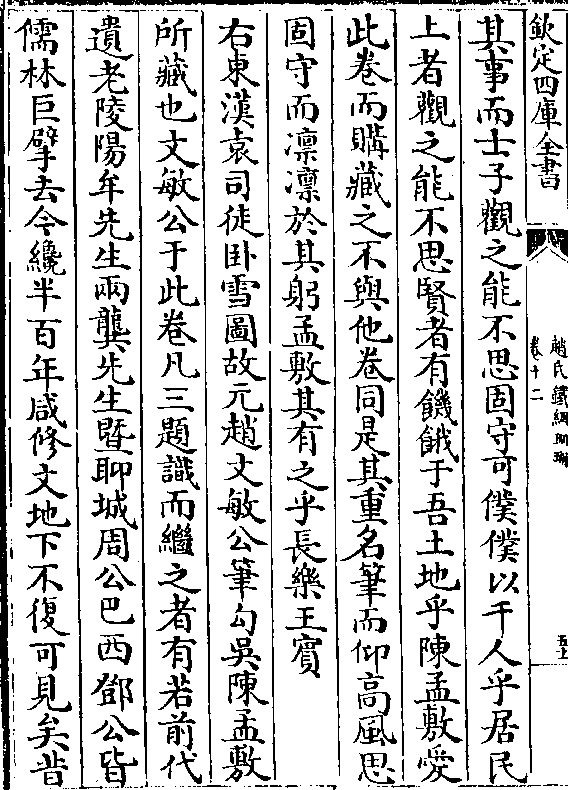 欽定四庫全書
趙氏鐵網珊瑚
卷十二
其事而士子觀之能不思固守可僕僕以干人乎居民
上者觀之能不思賢者有饑餓于吾土地乎陳孟敷愛
此卷而購藏之不與他卷同是其重名筆而仰高風思
固守而凛凛於其躬孟敷其有之乎長樂王賓
右東漢袁司徒卧雪圖故元趙文敏公筆勾吳陳孟敷
所藏也文敏公于此卷凡三題識而繼之者有若前代
遺老陵陽牟先生兩龔先生暨聊城周公巴西鄧公皆
儒林巨擘去今纔半百年咸修文地下不復可見矣昔